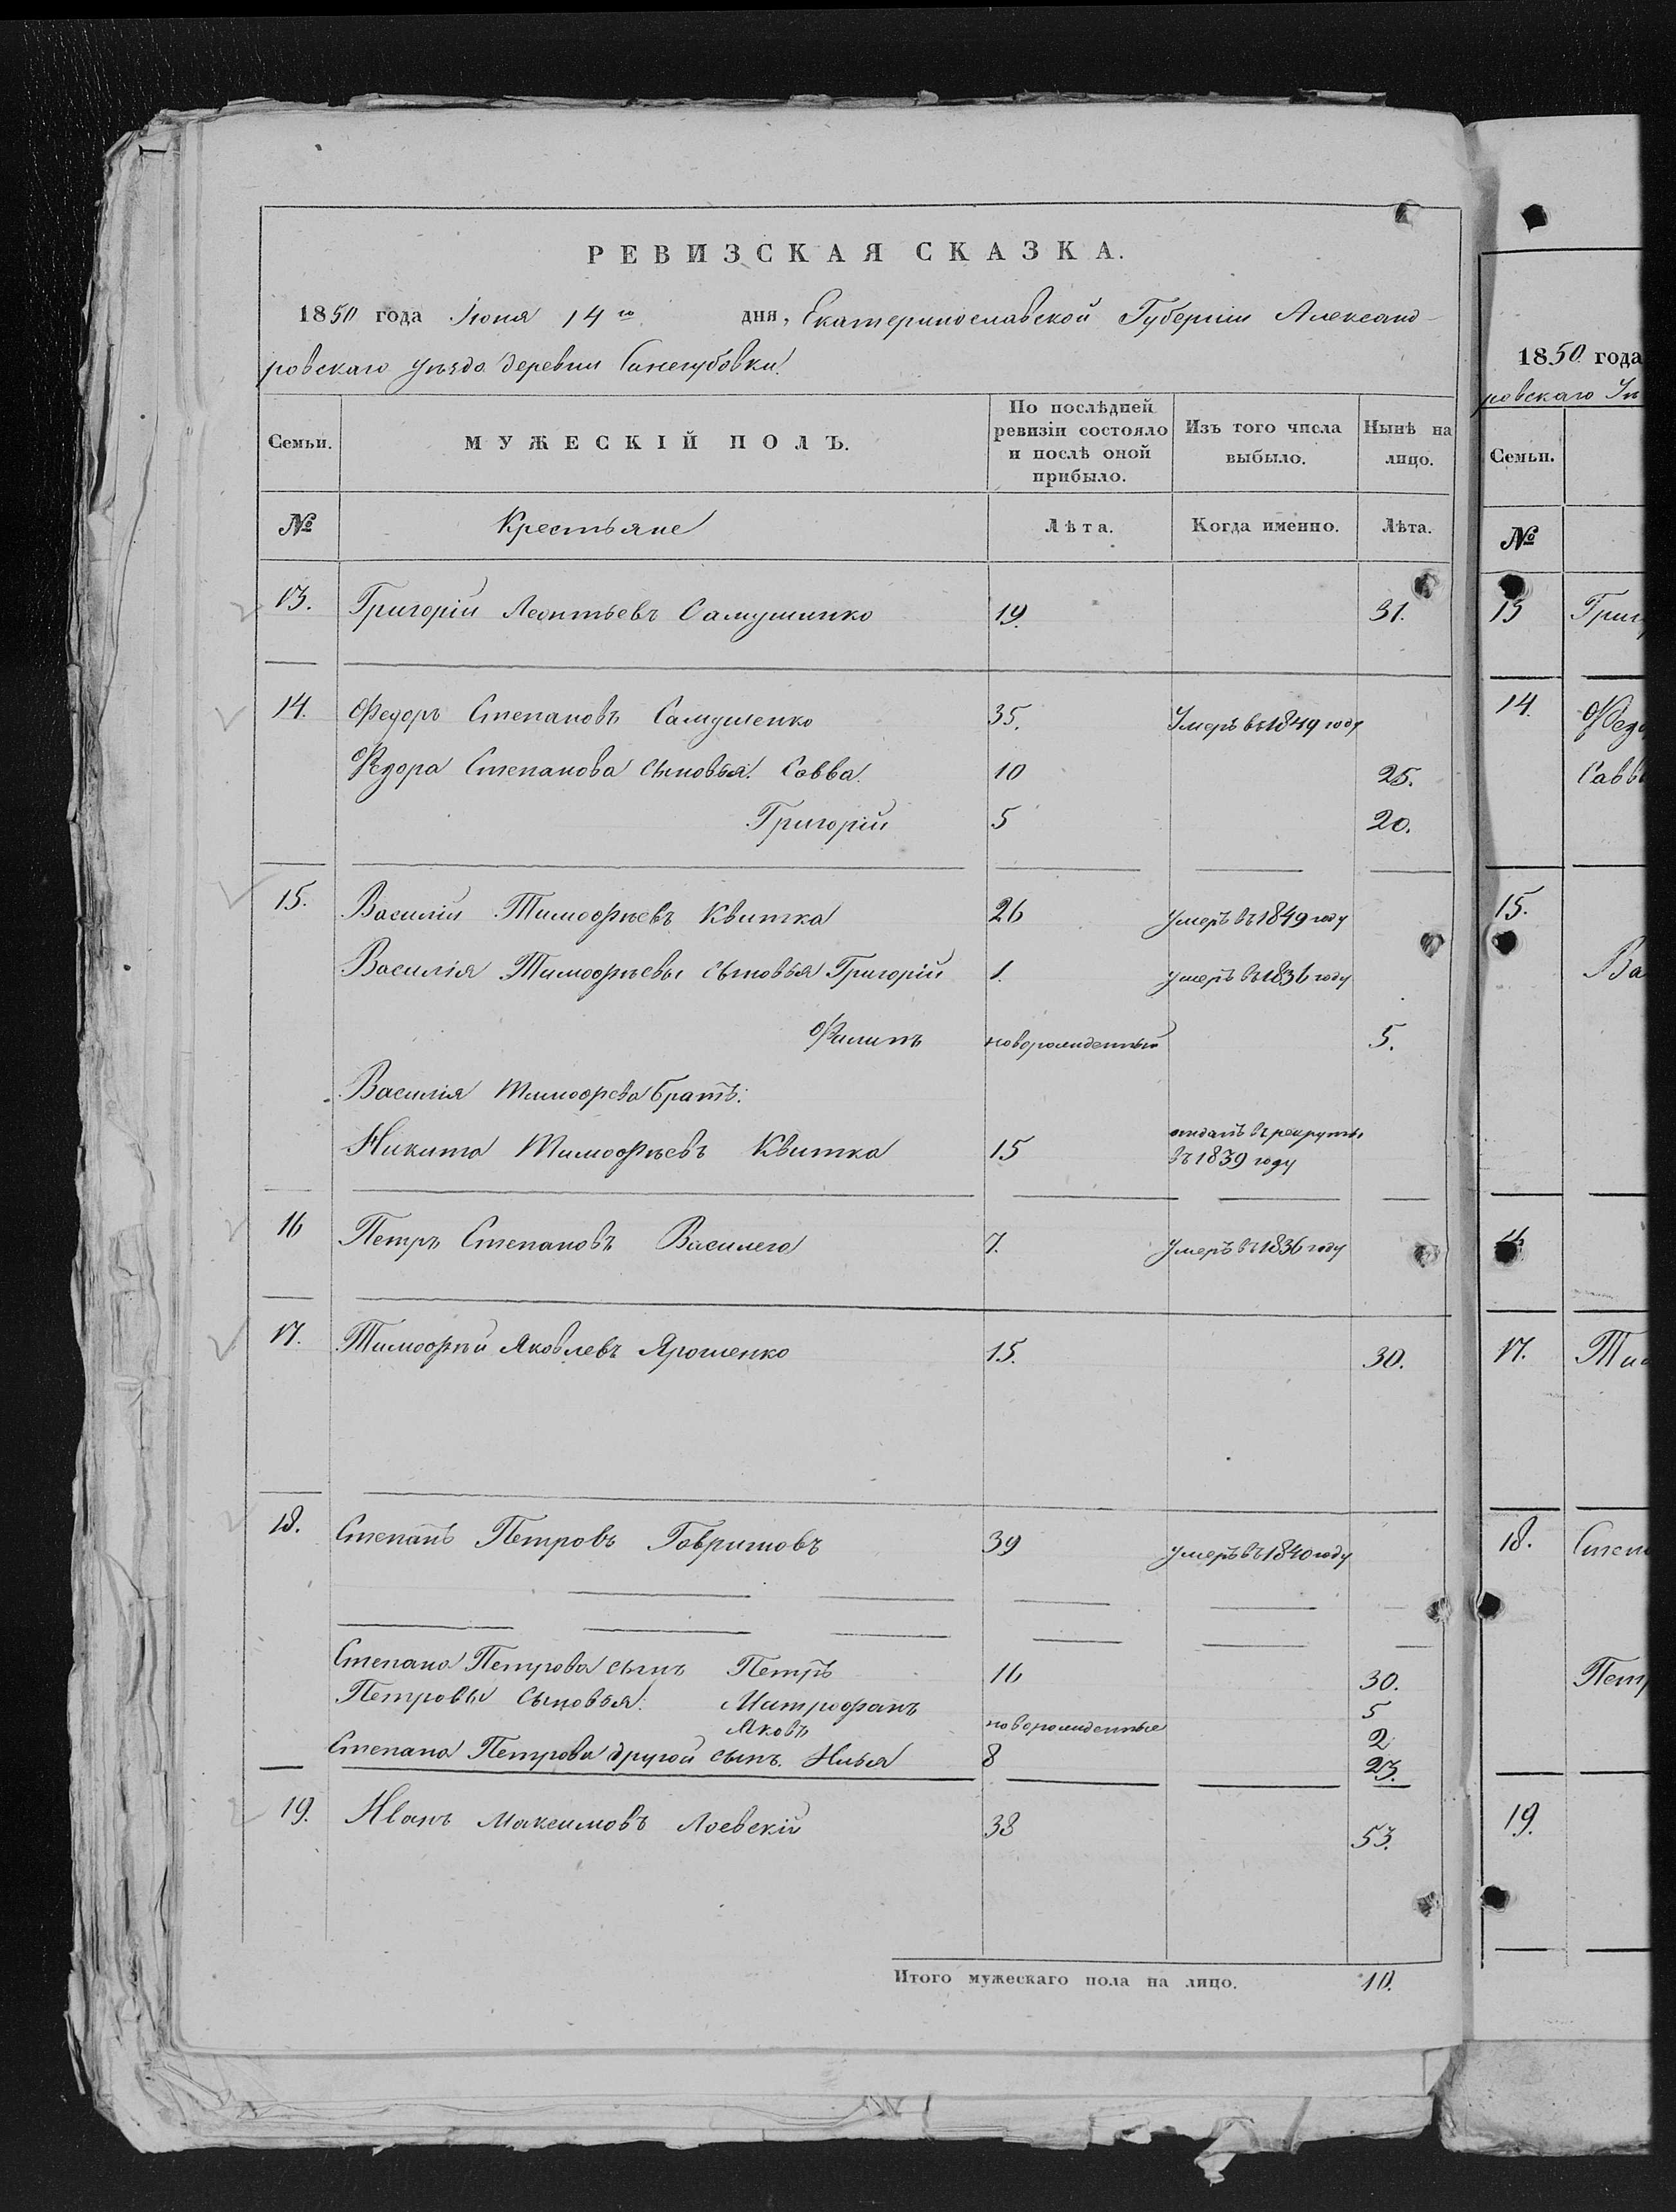 РЕВИЗСКАЯ СКАЗКА.
1850 года Июня 14го дня, Екатеринославской Губернии Александ-
ровскаго уѣзда деревни Синегубовки
Семьи. МУЖЕСКІЙ ПОЛЪ. По послѣдней ревизіи состояло и послѣ оной прибыло. Изъ того числа выбыло. Нынѣ на лицо.
№ Крестьяне Лѣта. Когда именно. Лѣта.
13. Григорій Леонтьевъ Самушинко 19. 31.
14. Федоръ Степановъ Самушенко 35. Умеръ въ 1849 году
Федора Степанова сыновья: Савва 10 25.
Григорій 5 20.
15. Василій Тимофѣевъ Квитка 26 умеръ въ 1849 году
Василія Тимофѣевы сыновья Григорій 1. умеръ въ 1836 году
Филипъ новорожденный 5.
Василія Тимофева братъ:
Никита Тимофѣевъ Квитка 15 отданъ въ рекруты въ 1839 году
16 Петръ Степановъ Василега 7. умеръ въ 1836 году
17. Тимофѣй Яковлевъ Ярошенко 15. 30.
18. Степанъ Петровъ Гавришовъ 39 умеръ въ 1840 году
Степана Петрова сынъ Петръ 16 30.
Петровы сыновья: Митрофанъ 5
Яковъ новорожденные 2
Степана Петрова другой сынъ Илья 8 23.
19. Иванъ Максимовъ Лоевскій 38 53.
Итого мужескаго пола на лицо. 10.
1850 года
ровскаго
Семьи.
№
13
14.
15.
17.
18.
19.